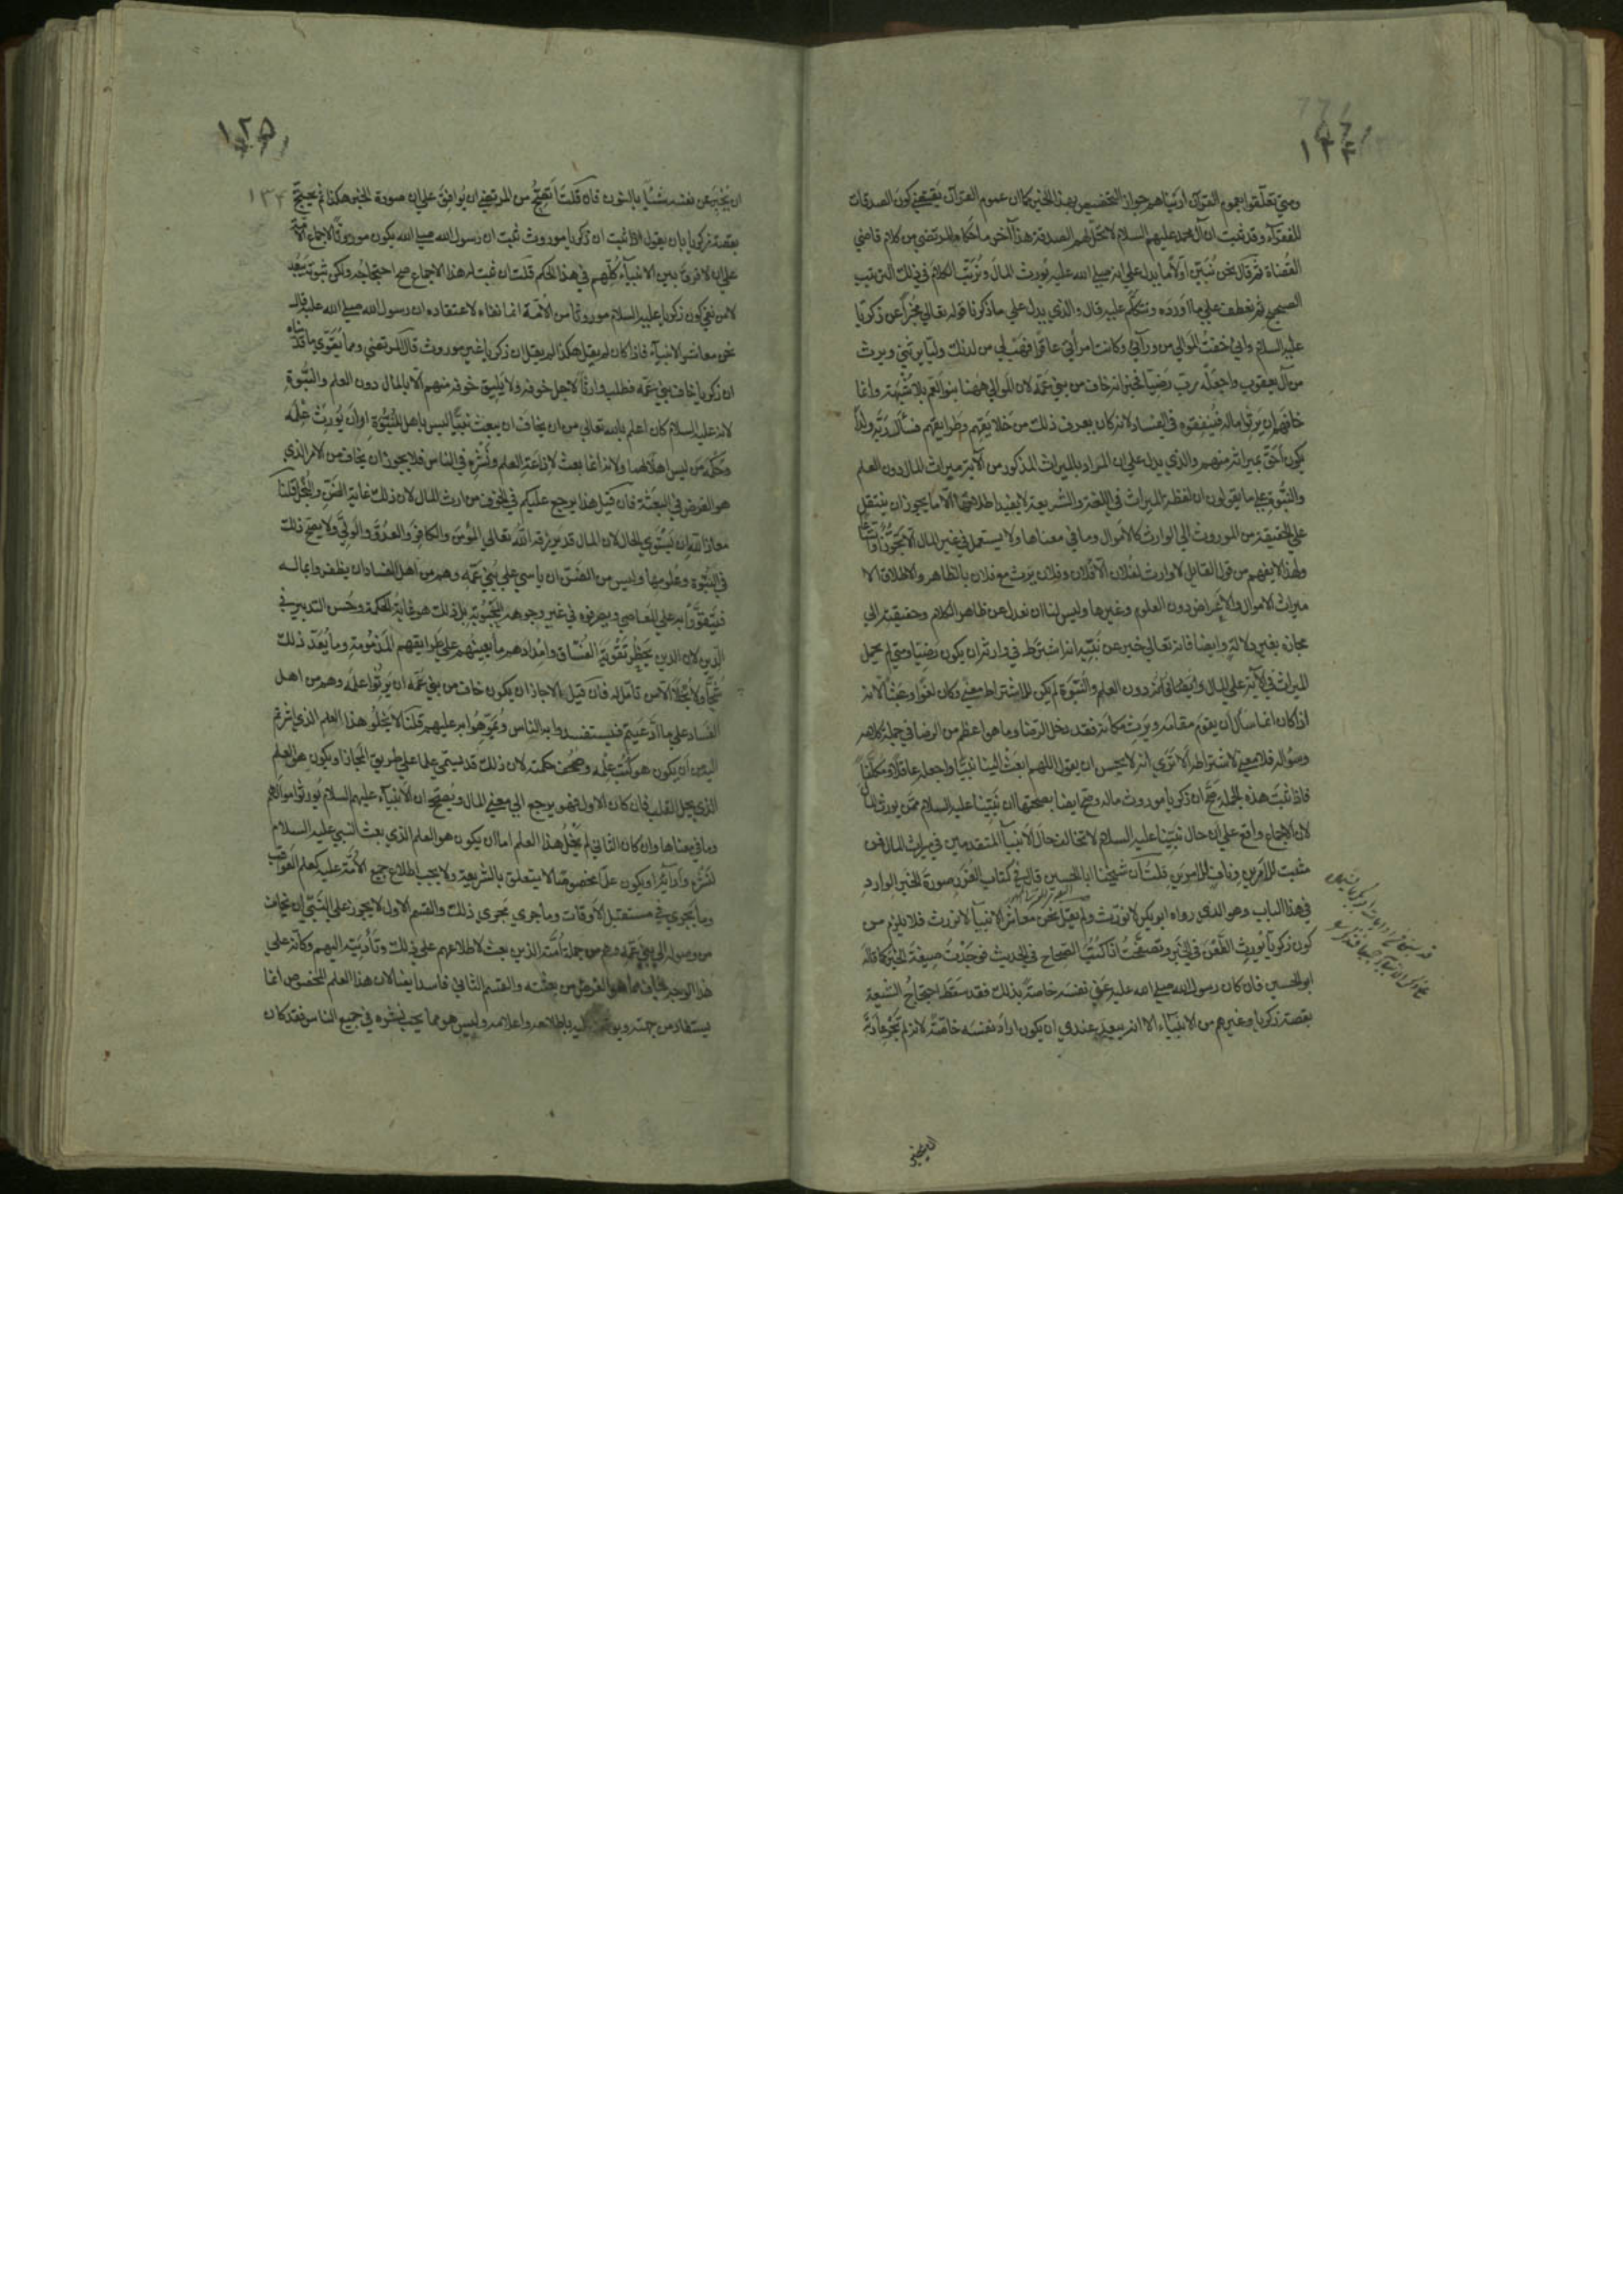 ومتى تعلقوا بعموم القرآن أريناهم جواز التخصيص بهذا الخبر كما ان عموم القرآن يقتضي كون الصدقات
للفقرآء وقد ثبت ان آل محمد عليهم السلام لا تحل لهم الصدقة هذا آخر ما حكاه المرتضى من كلام قاضي
القضاة ثم قال نحن نبين أولا ما يدل على انه صلى الله عليه يورث المال ونرتب الكلام في ذلك الترتيب
الصحيح ثم نعطف على ما أورده ونتكلم عليه قال والذي يدل على ما ذكرنا قوله تعالى مخبرا عن زكريا
عليه السلام واني خفت الموالي من ورآئي وكانت امرأتي عاقرا فهب لي من لدنك وليا يرثني ويرث
من آل يعقوب واجعله رب رضيا فخبر انه خاف من بني عمه لان الموالي ههنا بنو العم بلا شبهة وانما
خافهم ان يرثوا ماله فينفقوه في الفساد لانه كان يعرف ذلك من خلايقهم وطرايقهم فسأل ربه ولدا
يكون أحق بميراثه منهم والذي يدل على ان المراد بالميراث المذكور من الآية ميراث المال دون العلم
والنبوة على ما يقولون ان لفظة الميراث في اللغة والشريعة لا يفيد اطلاقها الا ما يجوز ان ينتقل
على الحقيقة من الموروث الى الوارث كالأموال وما في معناها ولا يستعمل في غير المال الا تجوزا واتساعا
ولهذا لا يفهم من قول القايل لا وارث لفلان الا فلان وفلان يرث مع فلان بالظاهر والاطلاق الا
ميراث الاموال والاعراض دون العلوم وغيرها وليس لنا ان نعدل عن ظاهر الكلام وحقيقته الى
مجازه بغير دلالة وايضا فانه تعالى خبر عن نبيه انه اشترط في وارثه ان يكون رضيا ومتى لم يحمل
الميراث في الآية على المال دون العلم والنبوة لم يكن للاشتراط معنى وكان لغوا وعبثا لانه
اذا كان انما سأل ان يقوم مقامه ويرث مكانه فقد دخل الرضا وما هو اعظم من الرضا في جملة كلامه
وسؤاله فلا معنى لاشتراطه ألا ترى انه لا يحسن ان يقول اللهم ابعث الينا نبيا واجعله عاقلا ومكلفا
فاذا ثبت هذه الجملة صح ان زكريا موروث ماله وصح ايضا بصحتها ان نبينا عليه السلام ممن يورث المال
لان الاجماع واقع على ان حال نبينا عليه السلام لا تخالف حال الانبيآ المتقدمين في ميراث المال فمن
مثبت للأمرين وناف للأمرين قلت ان شيخنا ابا الحسين قال في كتاب الغرر صورة الخبر الوارد
في هذا الباب وهو الذي رواه ابو بكر لا نورث ولم يقل نحن معاشر الانبيآ لا نورث فلا يلزم من
كون زكريا يورث الطعن في الخبر وتصفحت انا كتب الصحاح في الحديث فوجدت صيغة الخبر كما قاله
ابو الحسين فان كان رسول الله صلى الله عليه عنى نفسه خاصة بذلك فقد سقط احتجاج الشيعة
بقصة زكريا وغيرهم من الانبيآء الا انه يبعد عندي ان يكون اراد نفسه خاصة لانه لم تجر عادته
١٢٥
١٣٤
ان يخبر عن نفسه بشيء بالنون فان قلت أيصح من المرتضى ان يوافق على ان صورة الخبر هكذا ثم يحتج
بقصة زكريا بان يقول اذا ثبت ان زكريا موروث ثبت ان رسول الله صلى الله يكون موروثا لاجماع الأمة
على ان لا فرق بين الانبيآء كلهم في هذا الحكم قلت ان ثبت له هذا الاجماع صح احتجاجه ولكن ثبوته يبعد
لان من نفى كون زكريا عليه السلام موروثا من الأمة انما نفاه لاعتقاده ان رسول الله صلى الله عليه قال
نحن معاشر الانبيآء فاذا كان لم يقل هكذا لم يقل ان زكريا غير موروث قال المرتضى ومما يقوي ما قدمناه
ان زكريا خاف بني عمه فطلب وارثا لاجل خوفه ولا يليق خوفه منهم الا بالمال دون العلم والنبوة
لانه عليه السلام كان اعلم بالله تعالى من ان يخاف ان يبعث نبيا ليس باهل للنبوة او ان يورث علمه
وحكمه من ليس اهلا لهما ولانه انما بعث لإذاعة العلم ونشره في الناس فلا يجوز ان يخاف من الامر الذي
هو الغرض في البعثة فان قيل هذا يرجع عليكم في الخوف من ارث المال لان ذلك غاية الضن والبخل قلنا
معاذ الله ان يستوي الحال لان المال قد يرزقه الله تعالى المؤمن والكافر والعدو والولي ولا يصح ذلك
في النبوة وعلومها وليس من الضن ان يأسى على بني عمه وهم من اهل الفساد ان يظفروا بماله
فيتقووا به على المعاصي ويصرفوه في غير وجوهه المحبوبة بل ذلك هو غاية الحكمة وحسن التدبير في
الدين لان الدين يحظر تقوية الفساق وامدادهم بما يعينهم على طرايقهم المذمومة وما يعد ذلك
شحا ولا بخلا الا من لا تأمل له فان قيل الا جاز ان يكون خاف من بني عمه ان يرثوا علمه وهم من اهل
الفساد على ما ادعيتم فيستفسدوا به الناس ويموهوا به عليهم قلنا لا يخلو هذا العلم الذي اشرتم
اليه من ان يكون هو كتب علمه وصحف حكمته لان ذلك قد يسمى علما على طريق المجاز او يكون هو العلم
الذي يحل القلب فان كان الاول فهو يرجع الى معنى المال ويصحح ان الانبيآء عليهم السلام يورثوا اموالهم
وما في معناها وان كان الثاني لم يخل هذا العلم اما ان يكون هو العلم الذي بعث النبي عليه السلام
لنشره وأدآئه او يكون علما مخصوصا لا يتعلق بالشريعة ولا يجب اطلاع جميع الأمة عليه كعلم العواقب
وما يجري في مستقبل الأوقات وما جرى مجرى ذلك والقسم الاول لا يجوز على النبي ان يخاف
من وصوله الى بني عمه وهم من جملة أمته الذين بعث لاطلاعهم على ذلك وتأديته اليهم وكأنه على
هذا الوجه يخاف مما هو الغرض من بعثته والقسم الثاني فاسد ايضا لان هذا العلم المخصوص انما
يستفاد من جهته ويوقف عليه باطلاعه واعلامه وليس هو مما يجب نشره في جميع الناس فقد كان